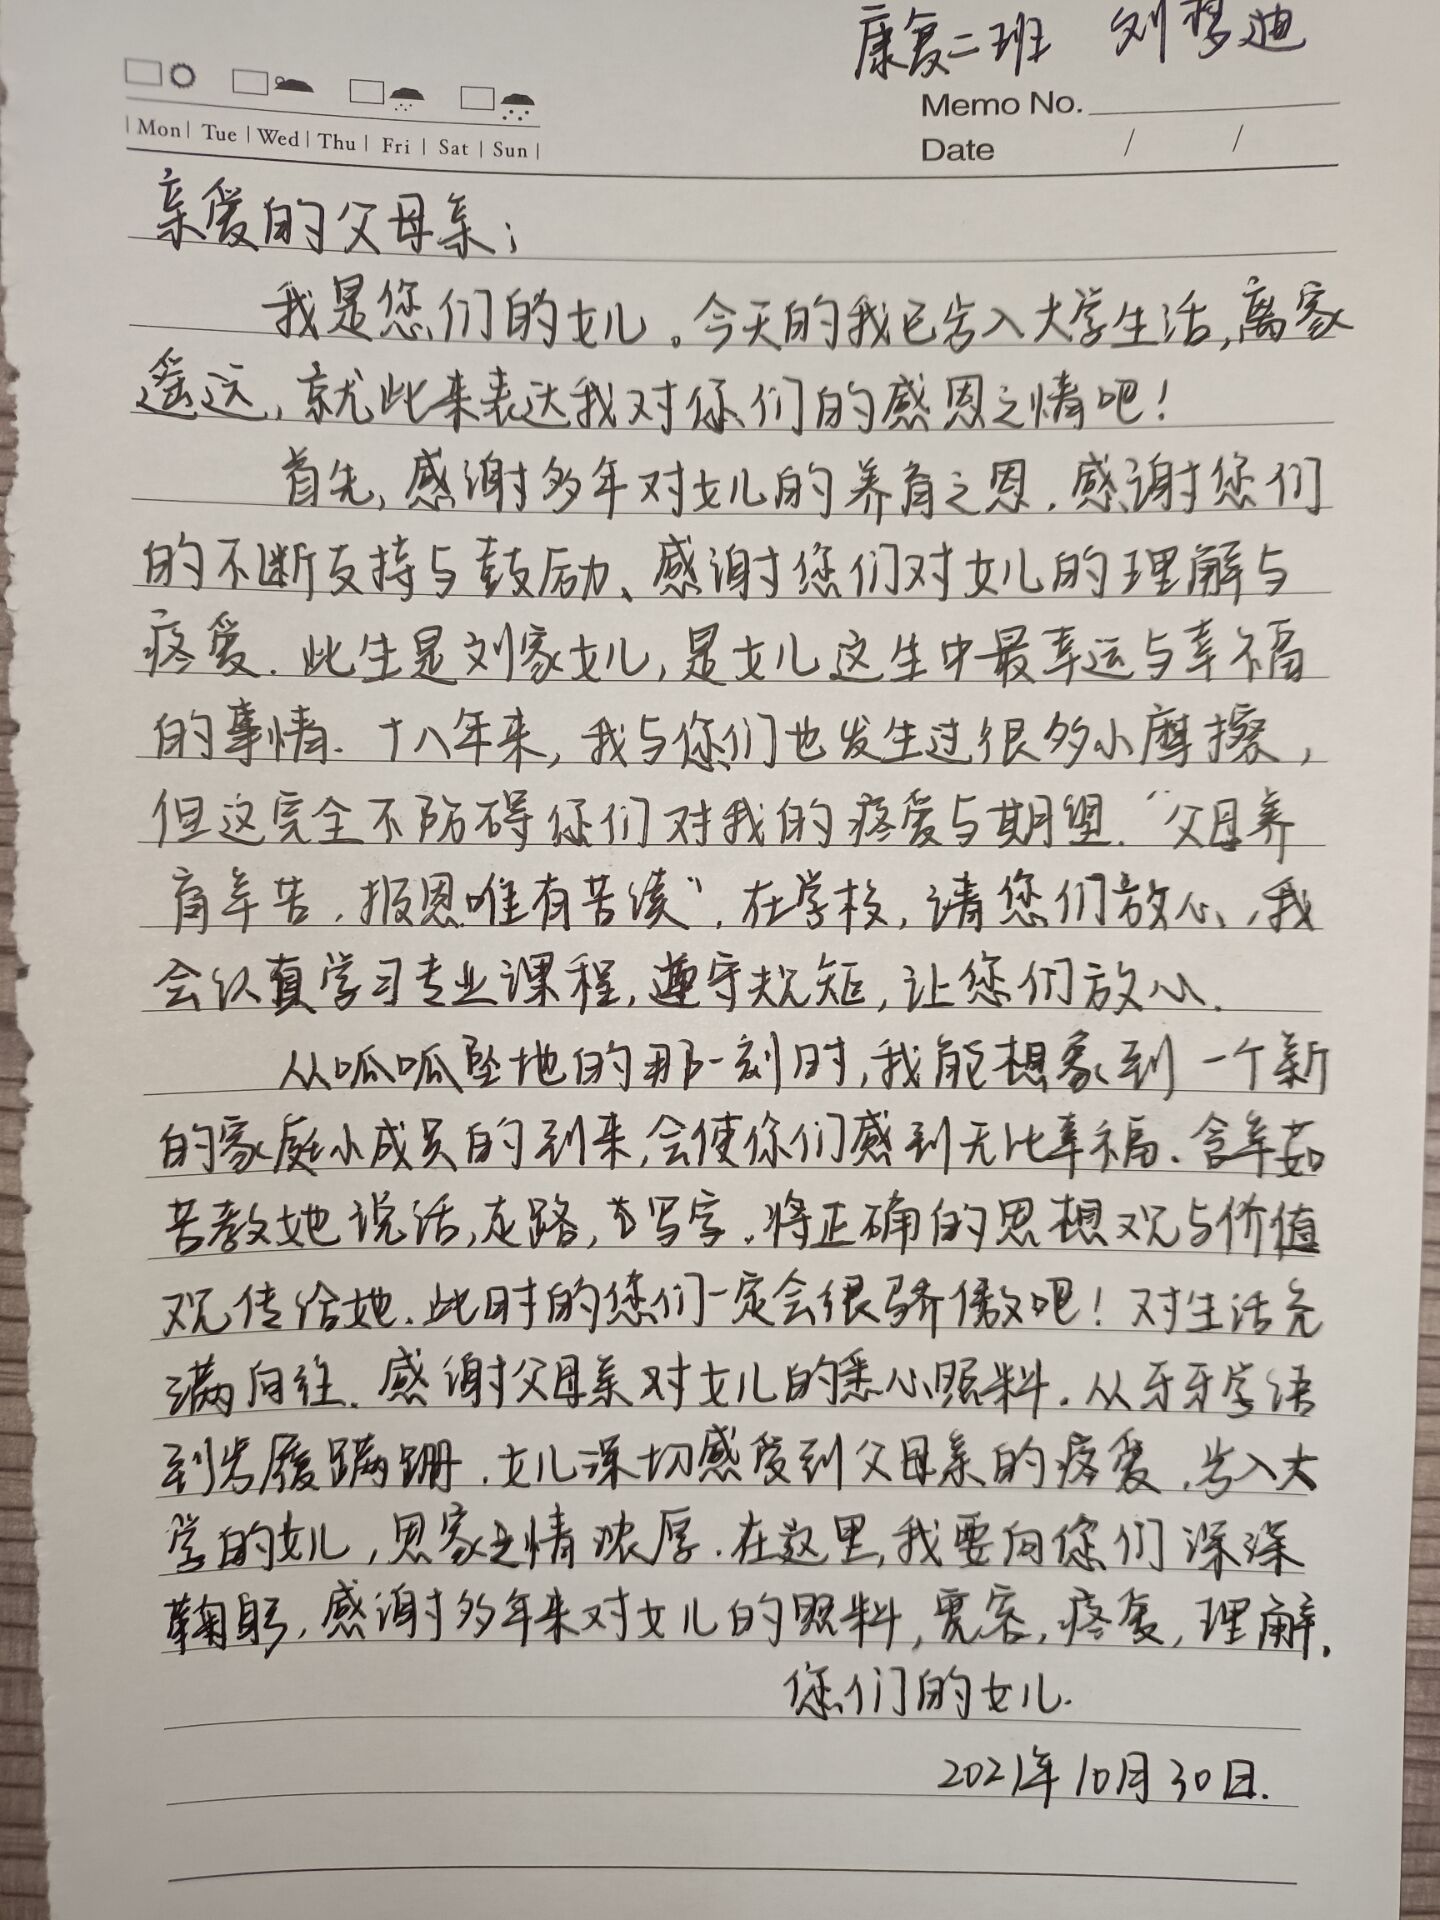 康复二班 刘梦迪
Memo No.
Mon Tue Wed Thu Fri Sat Sun
Date / /
亲爱的父母亲：
我是您们的女儿。今天的我已步入大学生活，离家
遥远，就此来表达我对您们的感恩之情吧！
首先，感谢多年对女儿的养育之恩．感谢您们
的不断支持与鼓励、感谢您们对女儿的理解与
疼爱．此生是刘家女儿，是女儿这生中最幸运与幸福
的事情．十八年来，我与您们也发生过很多小摩擦，
但这完全不防碍您们对我的疼爱与期望．“父母养
育辛苦，报恩唯有苦读”．在学校，请您们放心，我
会认真学习专业课程，遵守规矩，让您们放心．
从呱呱坠地的那一刻时，我能想象到一个新
的家庭小成员的到来，会使您们感到无比幸福．含辛茹
苦教她说话，走路，写字．将正确的思想观与价值
观传给她．此时的您们一定会很骄傲吧！对生活充
满向往．感谢父母亲对女儿的悉心照料．从牙牙学语
到步履蹒跚．女儿深切感受到父母亲的疼爱．步入大
学的女儿，思家之情浓厚．在这里，我要向您们深深
鞠躬，感谢多年来对女儿的照料，宽容，疼爱，理解．
您们的女儿．
2021年10月30日．